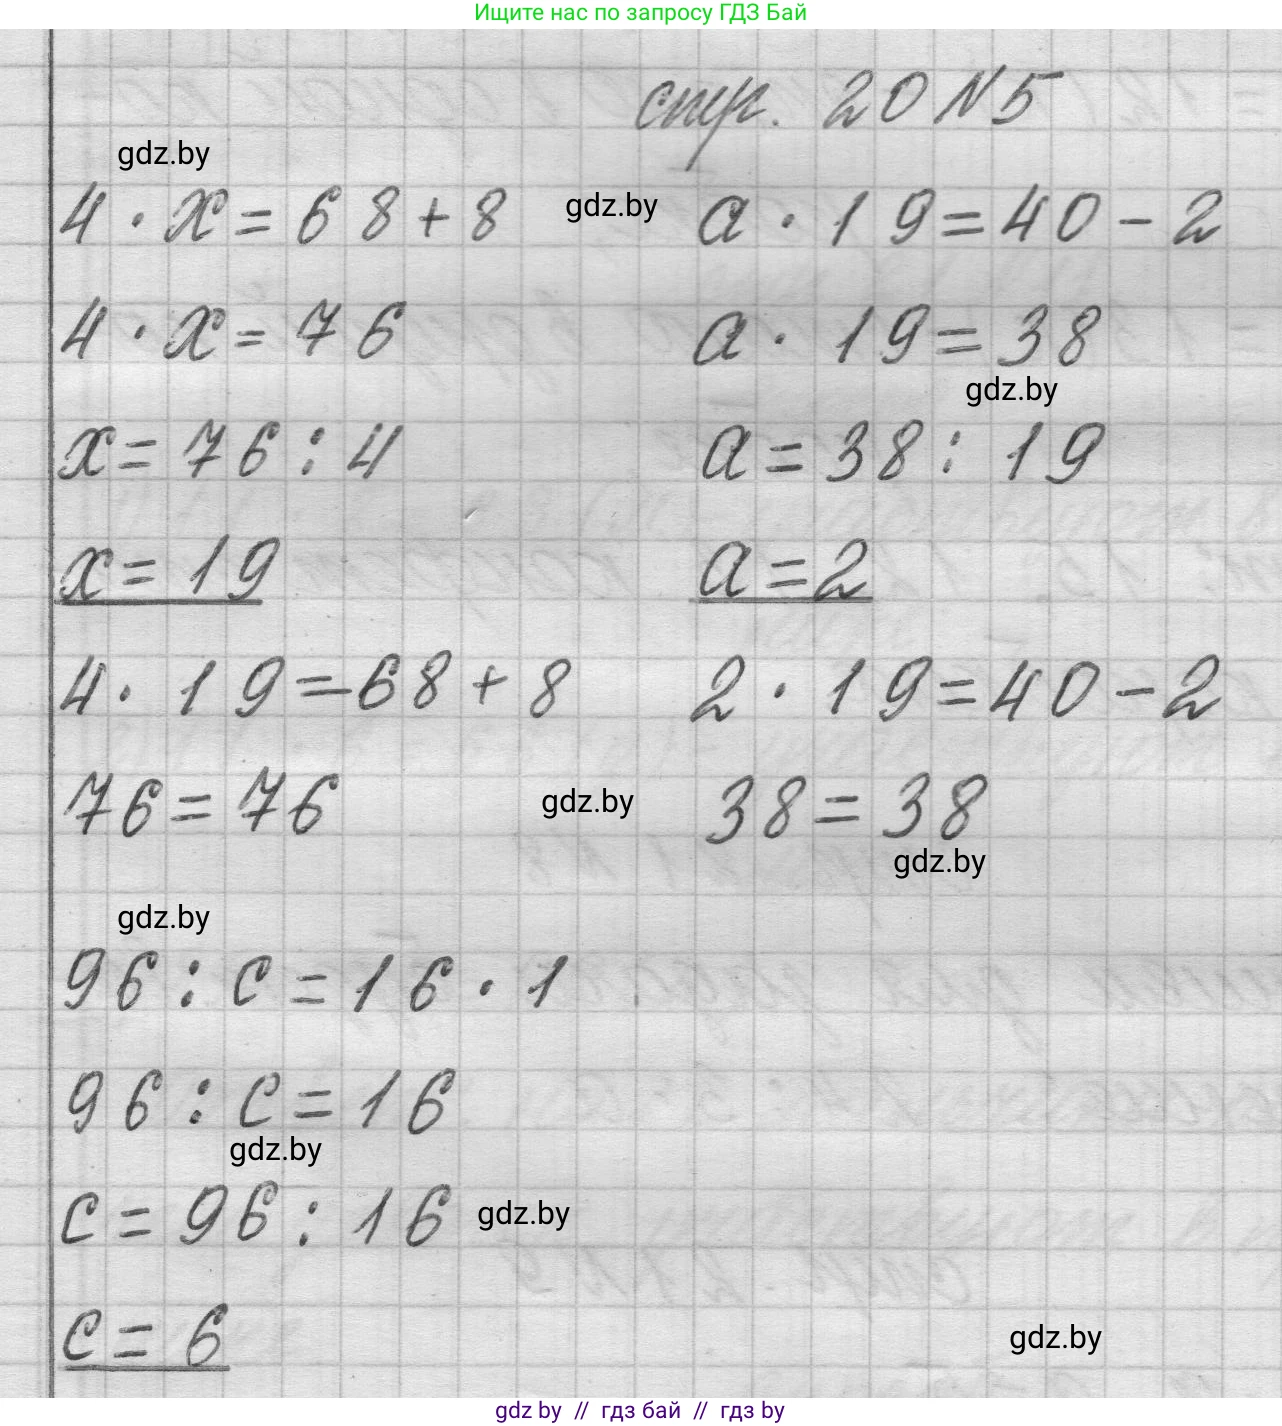 Ищите нас по запросу ГДЗ Бай
стр. 20 N5
gdz.by
4 · x = 68 + 8 gdz.by a · 19 = 40 - 2
4 · x = 76 a · 19 = 38
gdz.by
x = 76 : 4 a = 38 : 19
x = 19 a = 2
4 · 19 = 68 + 8 2 · 19 = 40 - 2
76 = 76 gdz.by 38 = 38
gdz.by
gdz.by
96 : c = 16 · 1
96 : c = 16
gdz.by
c = 96 : 16 gdz.by
c = 6
gdz.by
gdz by // гдз бай // gdz by